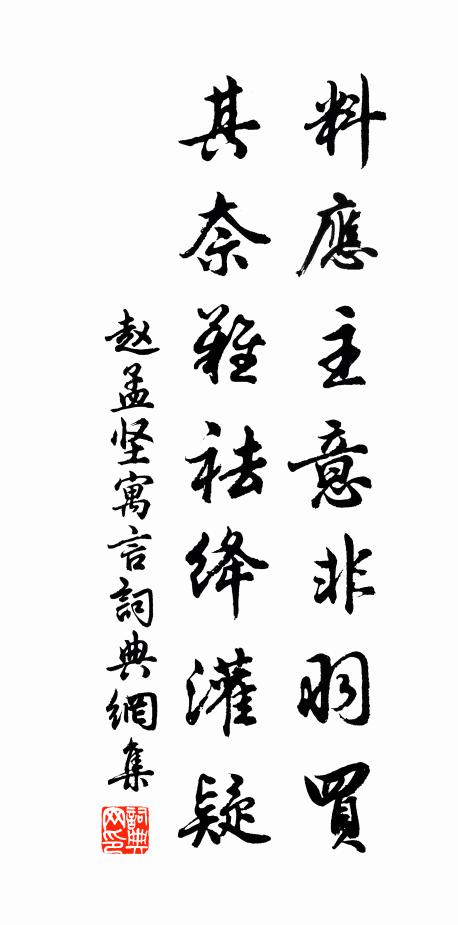 料應主意非朋買
其奈難祛絳灌疑
赵孟坚寓言詞典網集
詞典網印